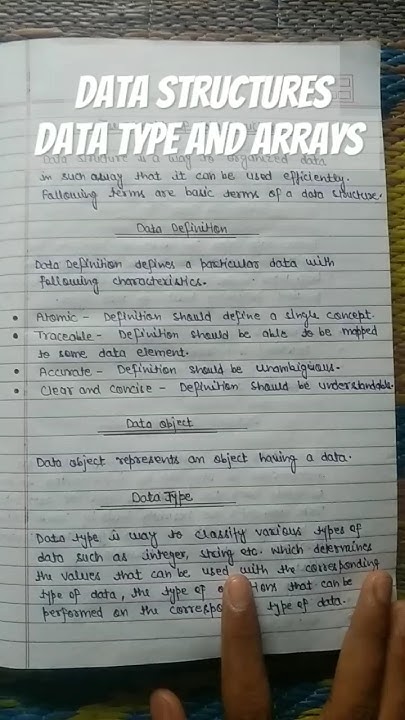 DATA STRUCTURES
DATA TYPE AND ARRAYS
Data structure is a way to organized data
in such away that it can be used efficiently.
Following terms are basic terms of a data structure.
Data Definition
Data Definition defines a particular data with
following characteristics.
• Atomic - Definition should define a single concept.
• Traceable - Definition should be able to be mapped
to some data element.
• Accurate - Definition should be unambiguous.
• Clear and Concise - Definition should be understandable.
Data object
Data object represents an object having a data.
Data Type
Data type is way to classify various types of
data such as integer, string etc. which determines
the values that can be used with the corresponding
type of data, the type of that can be
performed on the type of data.